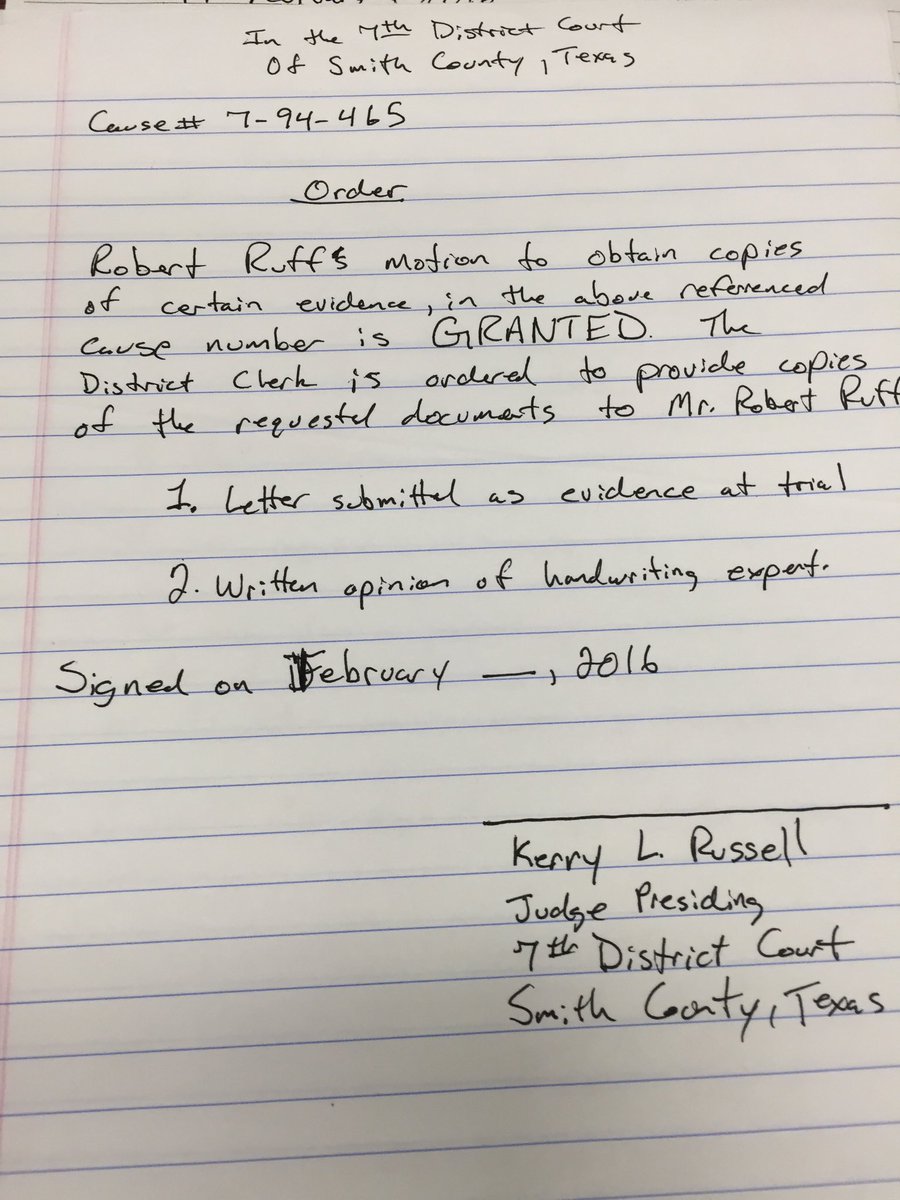 In the 7th District Court
Of Smith County, Texas
Cause # 7-94-465
Order
Robert Ruff's motion to obtain copies
of certain evidence, in the above referenced
cause number is GRANTED. The
District Clerk is ordered to provide copies
of the requested documents to Mr. Robert Ruff
1. Letter submitted as evidence at trial
2. Written opinion of handwriting expert.
Signed on February __, 2016
Kerry L. Russell
Judge Presiding
7th District Court
Smith County, Texas